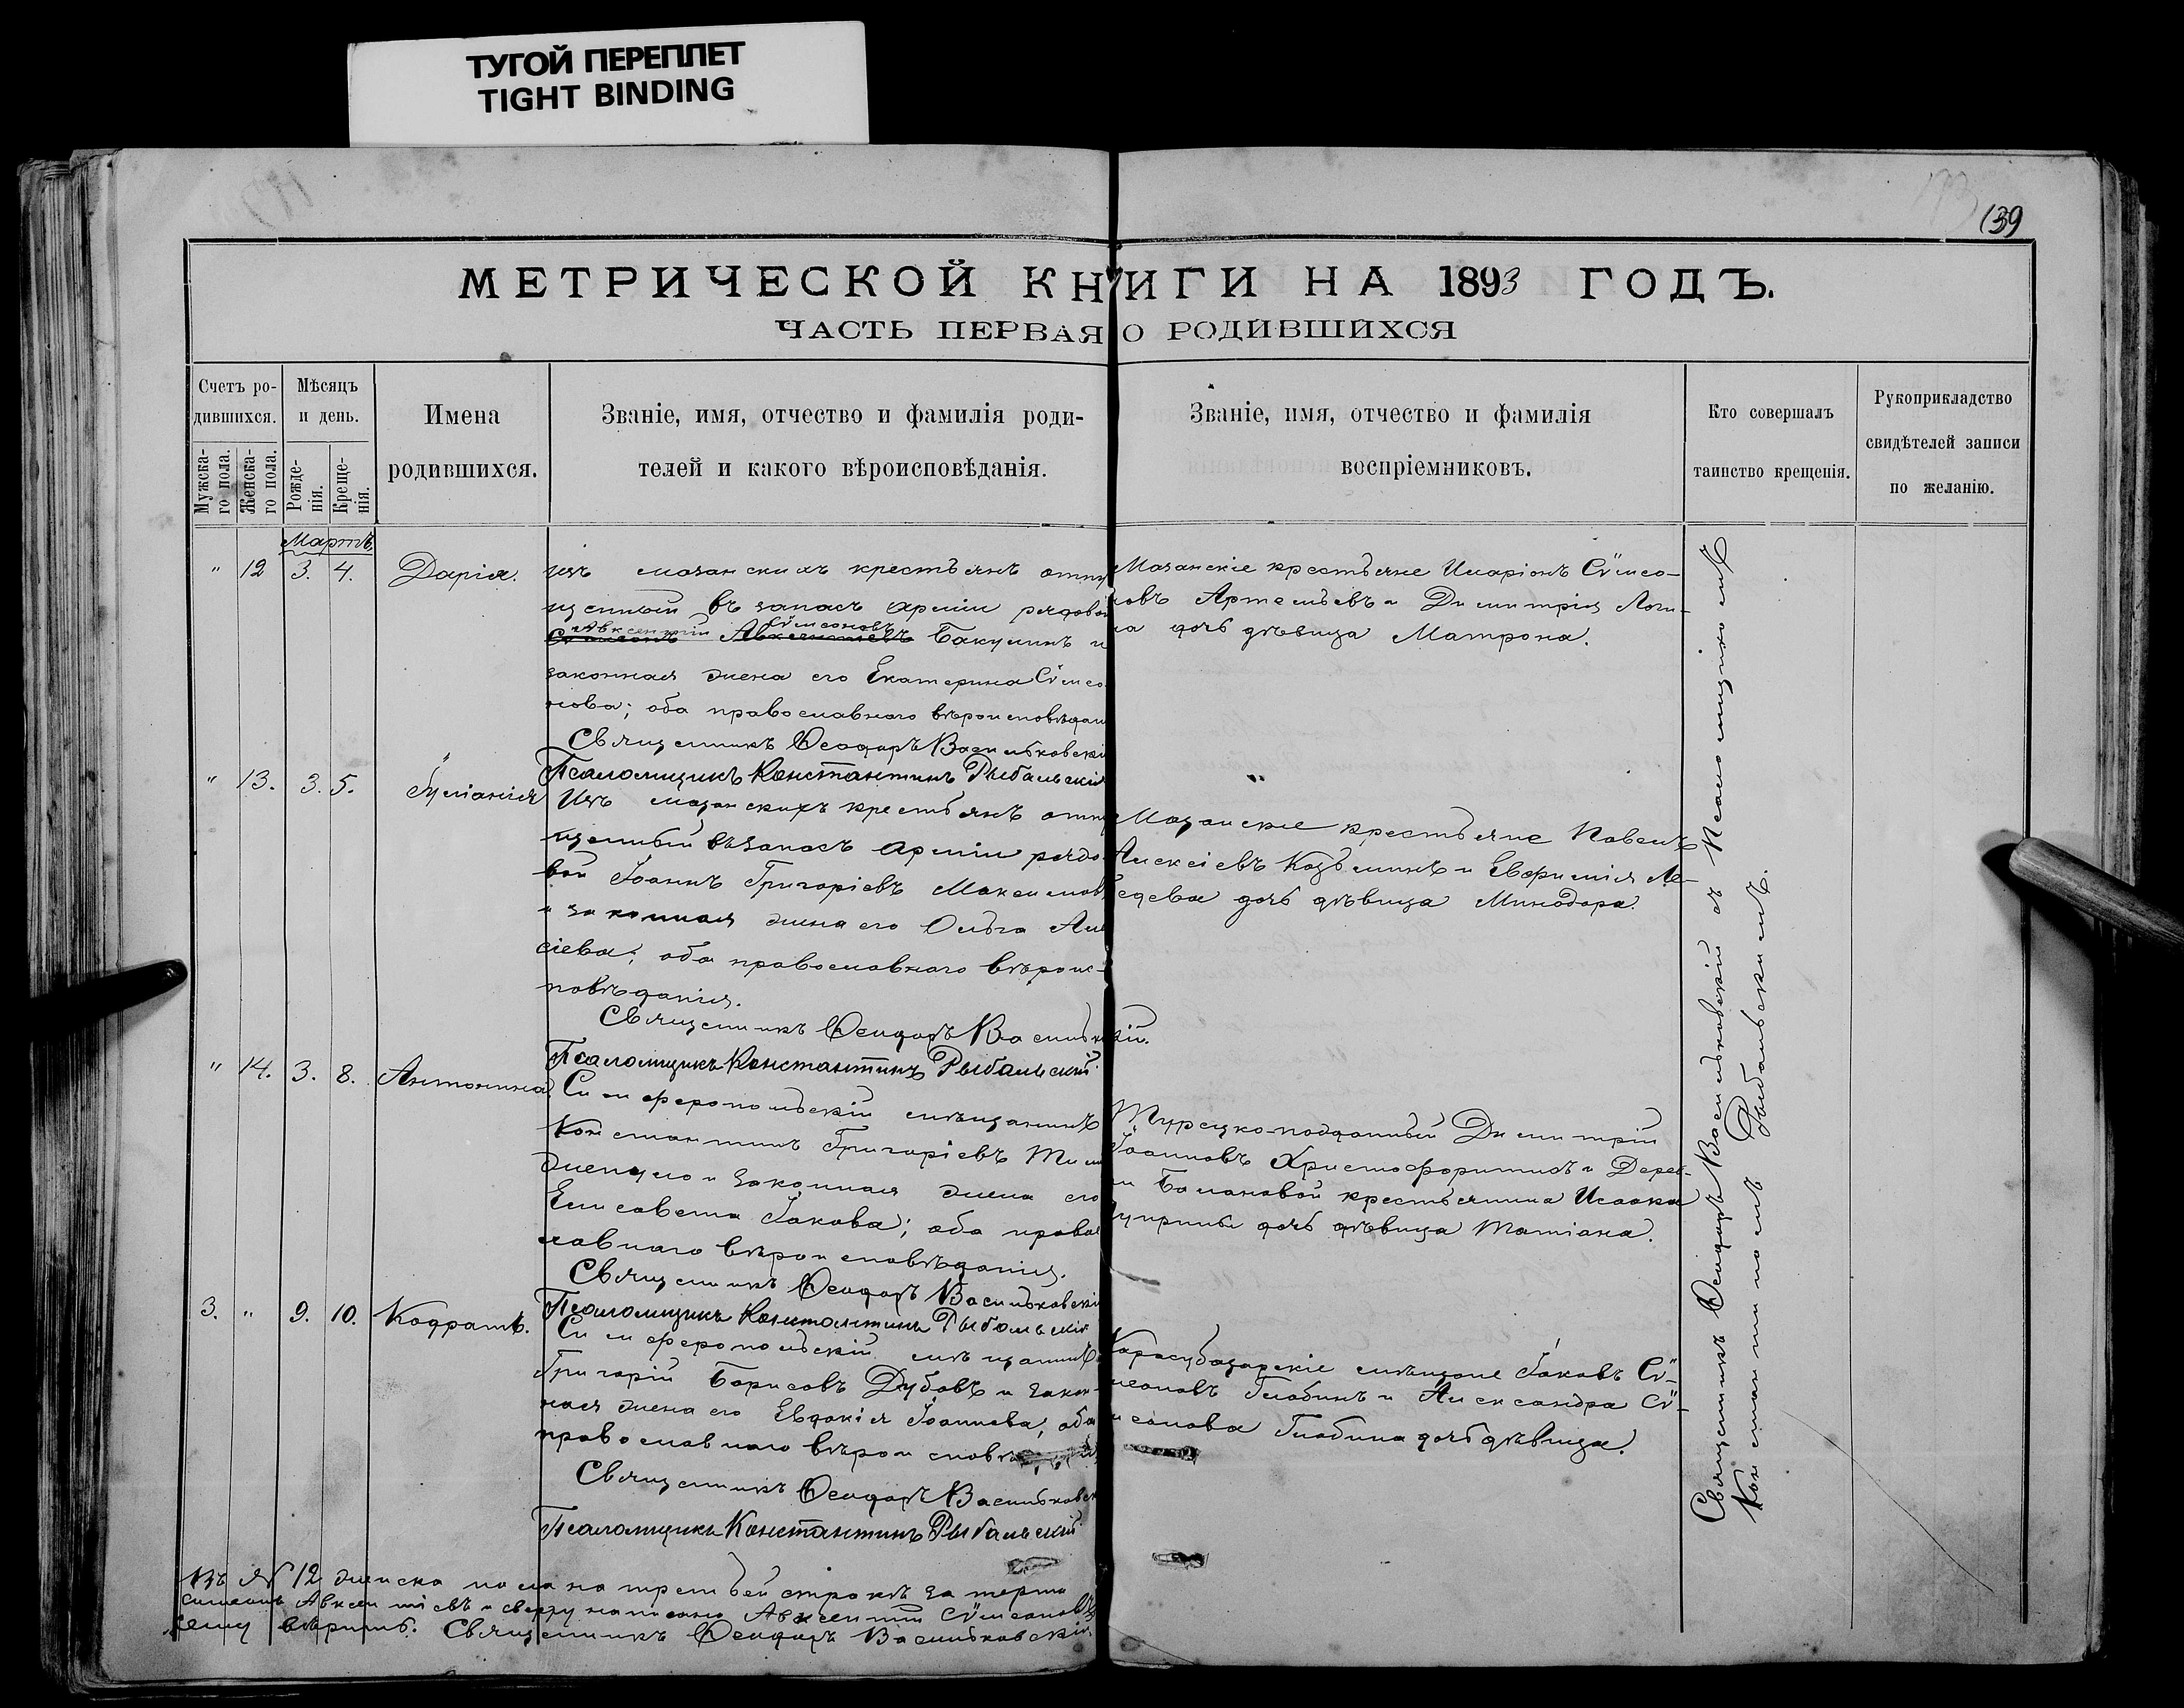 ТУГОЙ ПЕРЕПЛЕТ
TIGHT BINDING
139
МЕТРИЧЕСКОЙ КНИГИ НА 1893 ГОДЪ.
ЧАСТЬ ПЕРВАЯ О РОДИВШИХСЯ
Счетъ ро-
дившихся.
Мужска-
го пола.
Женска-
го пола.
Мѣсяцъ
и день.
Рожде-
нія.
Креще-
нія.
Имена
родившихся.
Званіе, имя, отчество и фамилія роди-
телей и какого вѣроисповѣданія.
Званіе, имя, отчество и фамилія
воспріемниковъ.
Кто совершалъ
таинство крещенія.
Рукоприкладство
свидѣтелей записи
по желанію.
Мартъ
" 12 3. 4. Дарія.
изъ мазанскихъ крестьянъ отпу
щенный въ запасъ арміи рядовой
Авксентій Сѵмеоновъ
Сѵмеонъ Авксентіевъ Бакулинъ и
законная жена его Екатерина Сѵмео
нова; оба православнаго вѣроисповѣдан
Священникъ Ѳеодоръ Васильковскі
Псаломщикъ Константинъ Рыбальскій
Мазанскіе крестьяне Иларіонъ Сѵмео-
новъ Артемьевъ и Димитрія Логи-
на дочь дѣвица Матрона.
" 13. 3. 5. Іуліанія
Изъ мазанскихъ крестьянъ отпу
щенный въ запасъ арміи рядо-
вой Іоаннъ Григоріевъ Максимов
и законная жена его Ольга Але
сіева; оба православнаго вѣроис-
повѣданія.
Священникъ Ѳеодоръ Васильк кій.
Псаломщикъ Константинъ Рыбальскій
Мазанские крестьяне Павелъ
Алексіевъ Козьминъ и Евфимія Ле-
бедева дочь дѣвица Минодора.
" 14. 3. 8. Антонина
Симферопольскій мѣщанинъ
Константинъ Григоріевъ
и законная жена его
Елисавета Іакова; оба правос
лавнаго вѣроисповѣданія.
Священникъ Ѳеодоръ Васильковскі
Псаломщикъ Константинъ Рыбальскій
Турецко-подданный Димитрій
Іоанновъ и Дерев-
ни крестьянина Исаака
дочь дѣвица Татіана.
3. " 9. 10. Кодратъ.
Симферопольскій мѣщанинъ
Григорій Борисовъ Дубовъ и закон-
ная жена его Евдокія Іоаннова; оба
православнаго вѣроисповѣ
Священникъ Ѳеодоръ Васильковск
Псаломщикъ Константинъ Рыбальскій
Карасубазарскіе мѣщане Іаковъ Сѵ-
меоновъ Глобинъ и Александра Сѵ-
меонова Глобина дочь дѣвица.
Священникъ Ѳеодоръ Васильковскій съ Псаломщикомъ
Константиномъ Рыбальскимъ.
Въ № 12 женска пола на третьей строкѣ затерто
Симеонъ Авксентіевъ и сверху написано Авксентій Сѵмеоновъ
сему вѣрить. Священникъ Ѳеодоръ Васильковскій.